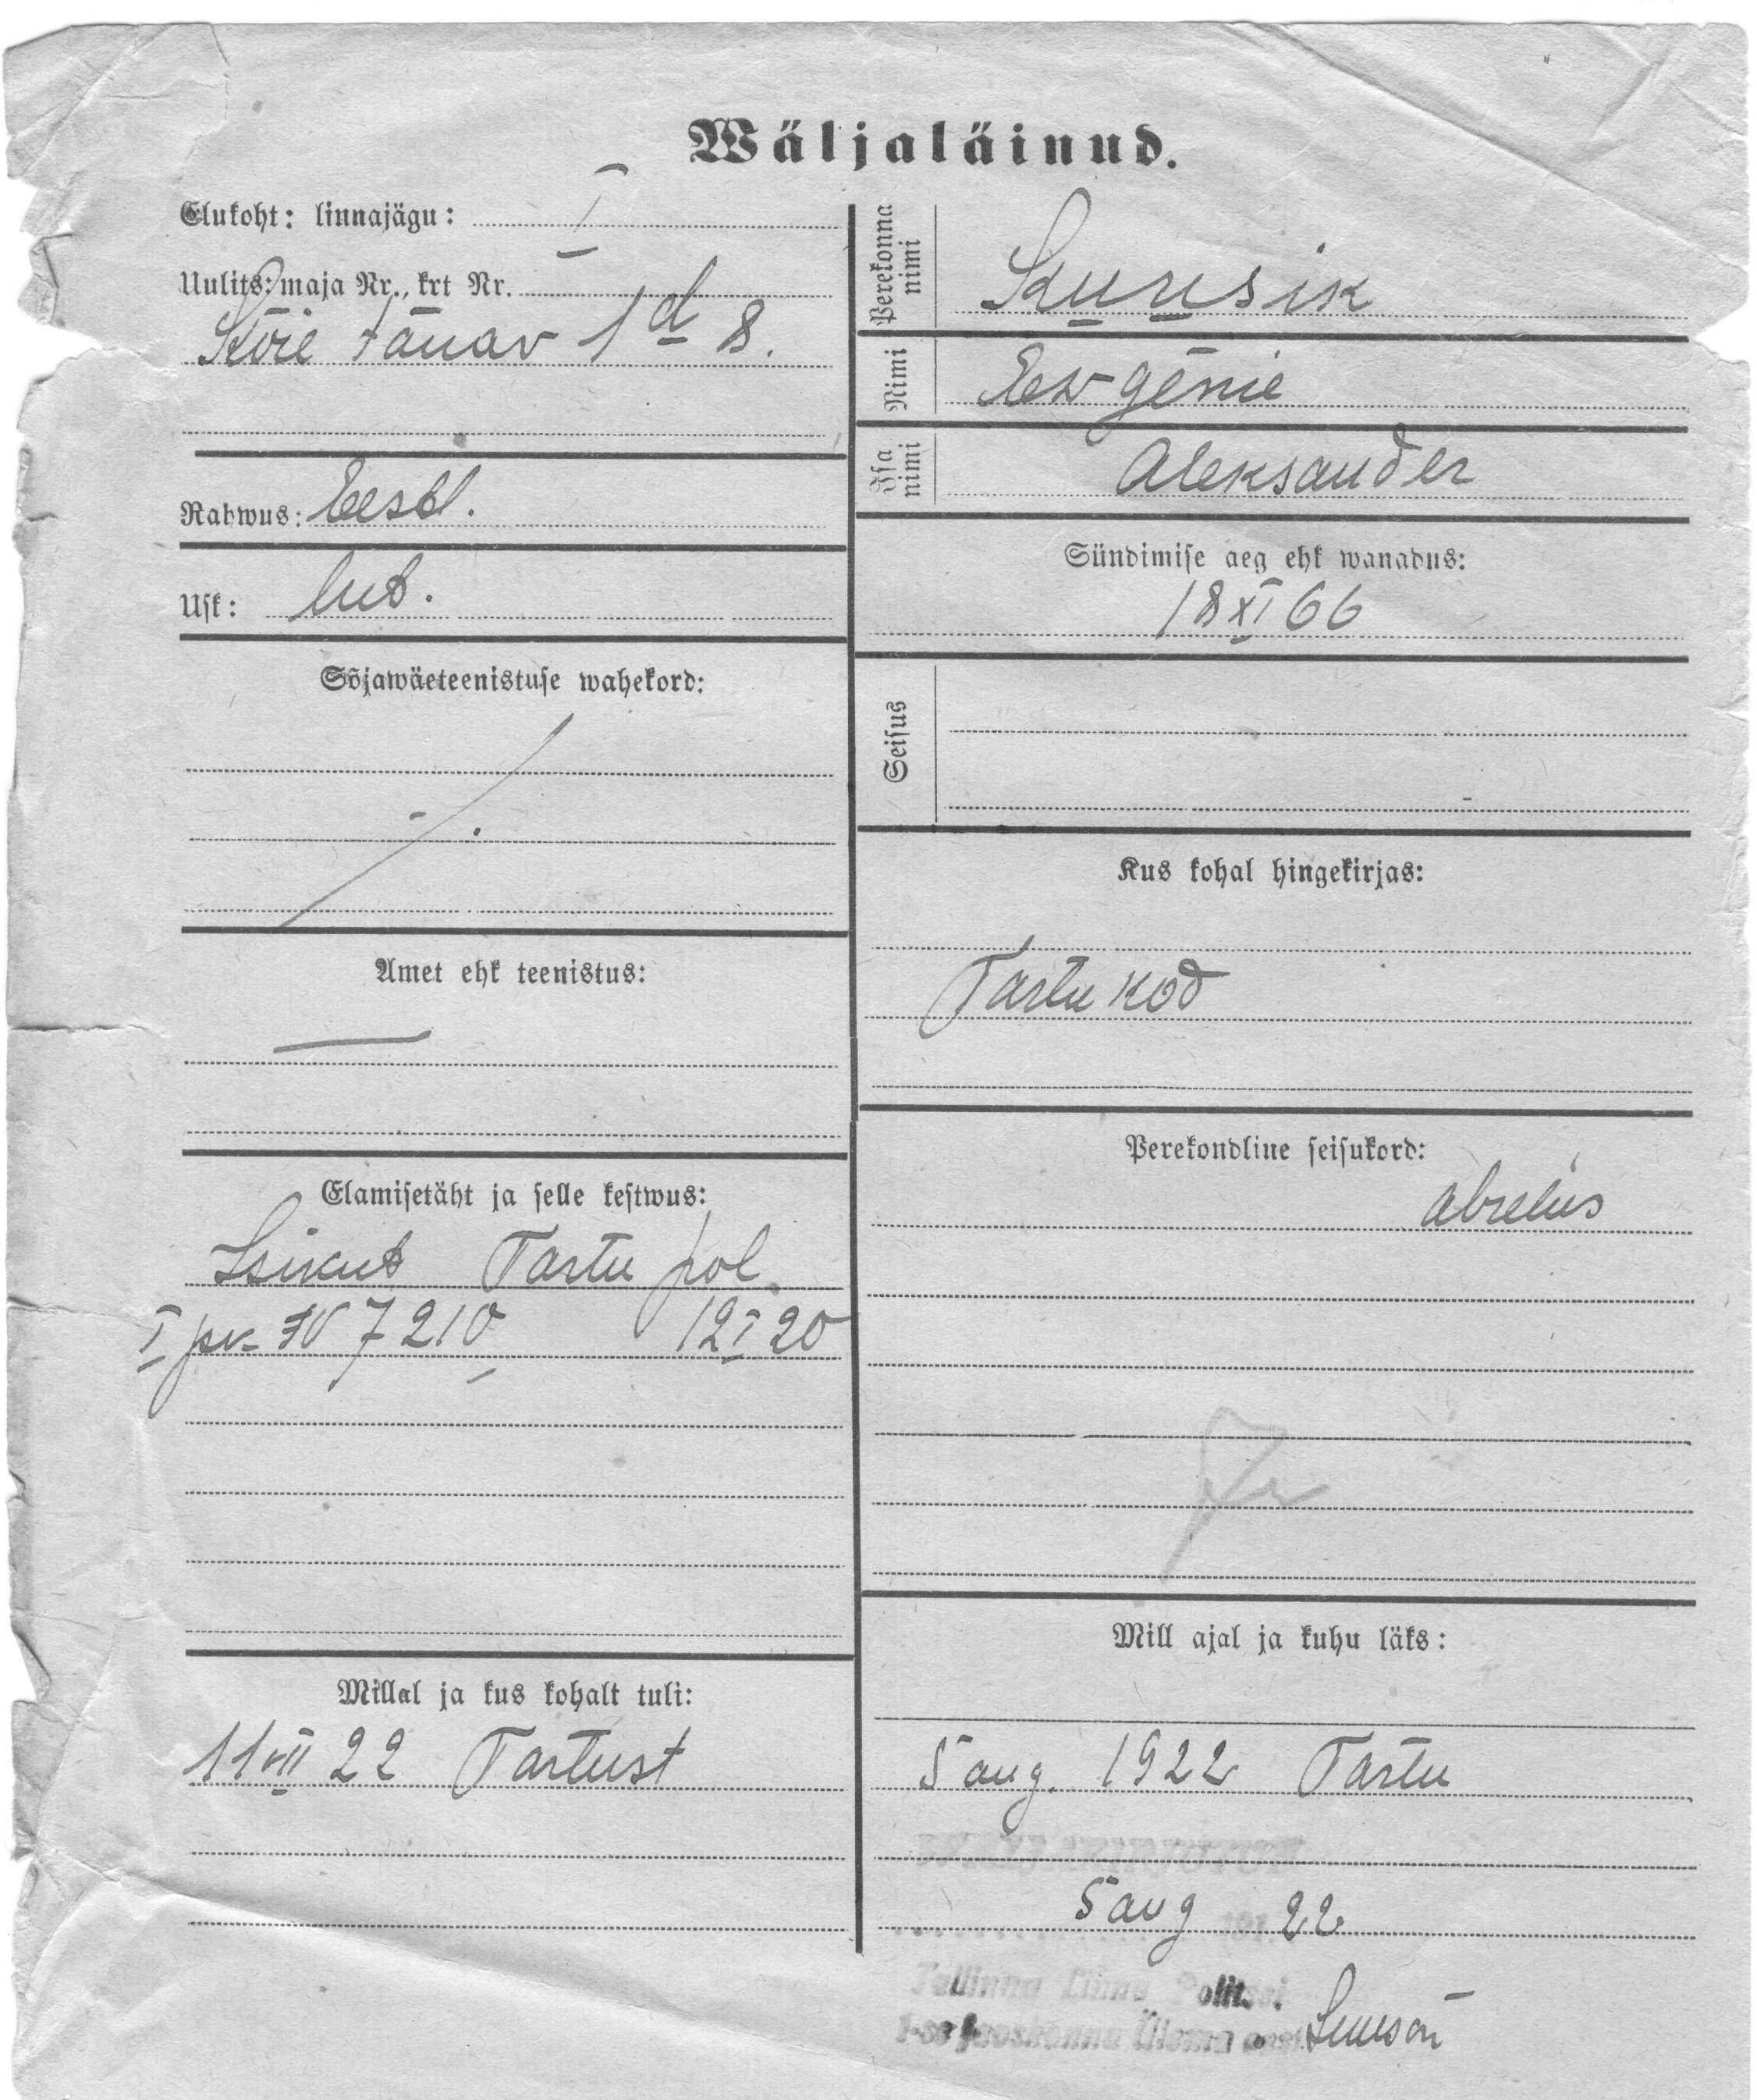 Wäljaläinud.
Elukoht: linnajägu: I
Uulits: maja Nr., krt Nr.
Köie tänav 1d 8.
Rahwus: Eestl.
Usk: lut.
Sõjawäeteenistuse wahekord:
Amet ehk teenistus:
—
Elamisetäht ja selle kestwus:
Isikut Tartu pol
I 7210 12 I 20
Millal ja kus kohalt tuli:
11 VII 22 Tartust
Perekonna nimi
Kuusik
Nimi Ewgénie
Isa nimi Aleksander
Sündimise aeg ehk wanadus:
18 XI 66
Seisus
Kus kohal hingekirjas:
Tartu kod
Perekondline seisukord:
abielus
Mill ajal ja kuhu läks:
5 aug. 1922 Tartu
5 aug 22
Tallinna Linna Politsei
1-se Jaoskonna Ülema